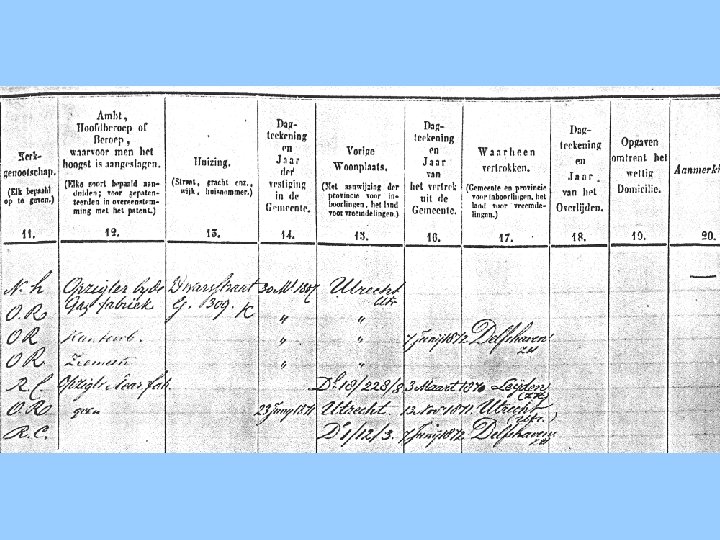 Kerk-
genootschap.
(Elk bepaald
op te geven.)
11.
Ambt,
Hoofdberoep of
Beroep,
waarvoor men het
hoogst is aangeslagen.
(Elke soort bepaald aan-
duiden; voor gepaten-
teerden in overeenstem-
ming met het patent.)
12.
Huizing.
(Straat, gracht enz.,
wijk, huisnommer.)
13.
Dag-
teekening
en
Jaar
der
vestiging
in de
Gemeente.
14.
Vorige
Woonplaats.
(Met aanwijzing der
provincie voor in-
boorlingen, het land
voor vreemdelingen.)
15.
Dag-
teekening
en
Jaar
van
het vertrek
uit de
Gemeente.
16.
Waarheen
vertrokken.
(Gemeente en provincie
voor inboorlingen, het
land voor vreemde-
lingen.)
17.
Dag-
teekening
en
Jaar
van het
Overlijden.
18.
Opgaven
omtrent het
wettig
Domicilie.
19.
Aanmerki
20.
N. h Opzigter by de Dwarsstraat Utrecht
O. R. Gaz fabriek G. 309.
O R " " 7 Junij 1872 Delfshaven
O R " "
R C 3 Maart 1870 Leyden
O. R. geen Utrecht 12 Nov 1871 Utrecht
R. C. 7 Junij 1872 Delfshaven